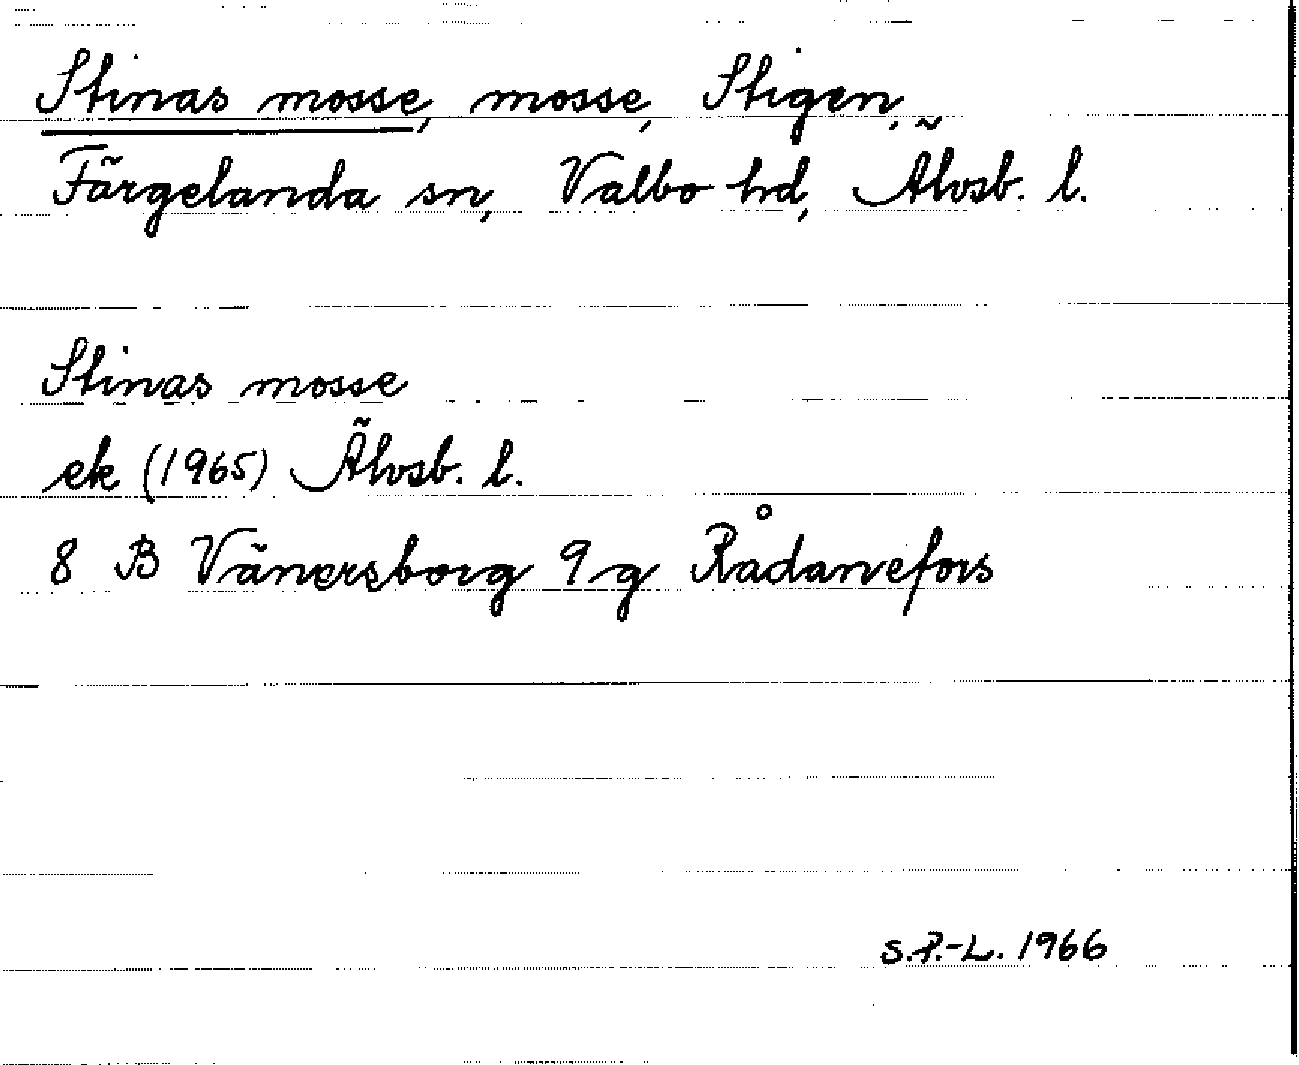 Stinas mosse, mosse, Stigen,
Färgelanda sn, Valbo hd, Älvsb. l.
Stinas mosse
ek (1965) Älvsb. l.
8 B Vänersborg 9 g Rådanefors
S.P.-L. 1966